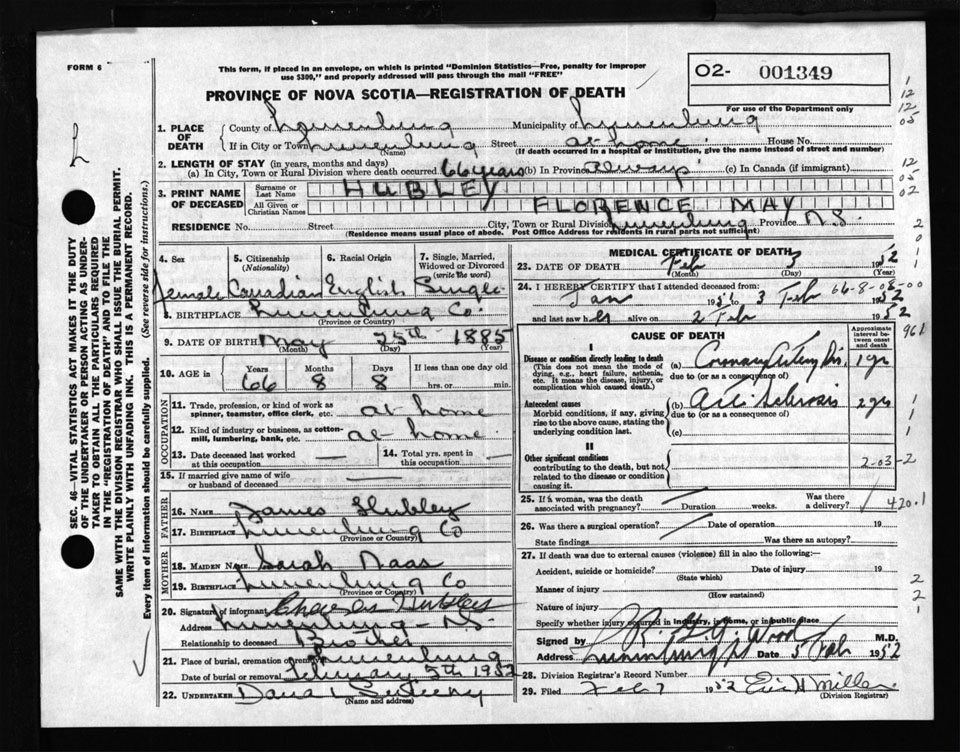 FORM 6
This form, if placed in an envelope, on which is printed "Dominion Statistics—Free, penalty for improper
use $300," and properly addressed will pass through the mail "FREE"
02- 001349
For use of the Department only
PROVINCE OF NOVA SCOTIA—REGISTRATION OF DEATH
1. PLACE OF DEATH
County of Lunenburg Municipality of Lunenburg
If in City or Town Lunenburg (Name) Street at home House No.
(If death occurred in a hospital or institution, give the name instead of street and number)
2. LENGTH OF STAY (in years, months and days)
(a) In City, Town or Rural Division where death occurred 66 years (b) In Province always (c) In Canada (if immigrant)
3. PRINT NAME OF DECEASED
Surname or Last Name HUBLEY
All Given or Christian Names FLORENCE MAY
RESIDENCE No. Street City, Town or Rural Division Lunenburg Province N.S.
(Residence means usual place of abode. Post Office Address for residents in rural parts not sufficient)
4. Sex female
5. Citizenship (Nationality) Canadian
6. Racial Origin English
7. Single, Married, Widowed or Divorced (write the word) Single
8. BIRTHPLACE Lunenburg Co.
(Province or Country)
9. DATE OF BIRTH May 25th 1885
(Month) (Day) (Year)
10. AGE in Years 66 Months 8 Days 8 If less than one day old hrs. or min.
OCCUPATION
11. Trade, profession, or kind of work as spinner, teamster, office clerk, etc. at home
12. Kind of industry or business, as cotton-mill, lumbering, bank, etc. at home
13. Date deceased last worked at this occupation —
14. Total yrs. spent in this occupation —
15. If married give name of wife or husband of deceased —
FATHER
16. NAME James Hubley
17. BIRTHPLACE Lunenburg Co
(Province or Country)
MOTHER
18. MAIDEN NAME Sarah Naas
19. BIRTHPLACE Lunenburg Co
(Province or Country)
20. Signature of informant Charles Hubley
Address Lunenburg - N.S.
Relationship to deceased Brother
21. Place of burial, cremation or removal Lunenburg
Date of burial or removal February 5th 1952
22. UNDERTAKER
(Name and address)
MEDICAL CERTIFICATE OF DEATH
23. DATE OF DEATH Feb 3 1952
(Month) (Day) (Year)
24. I HEREBY CERTIFY that I attended deceased from:
66-8-08-00
Jan 1951 to 3 Feb 1952
and last saw her alive on 2 Feb 1952
CAUSE OF DEATH
Approximate interval between onset and death
961
I
Disease or condition directly leading to death
(This does not mean the mode of dying, e.g., heart failure, asthenia, etc. It means the disease, injury, or complication which caused death.)
(a) Coronary Artery Dis. 1 yr
due to (or as a consequence of)
Antecedent causes
Morbid conditions, if any, giving rise to the above cause, stating the underlying condition last.
(b) Sclerosis 2 yrs
due to (or as a consequence of)
(c)
II
Other significant conditions
contributing to the death, but not related to the disease or condition causing it.
2-03-2
25. If a woman, was the death associated with pregnancy? Duration weeks. Was there a delivery?
420.1
26. Was there a surgical operation? Date of operation 19
State findings Was there an autopsy?
27. If death was due to external causes (violence) fill in also the following:—
Accident, suicide or homicide? (State which) Date of injury 19
Manner of injury
(How sustained)
Nature of injury
Specify whether injury occurred in industry, in home, or in public place
Signed by Wood M.D.
Address Lunenburg Date 5 Feb 1952
28. Division Registrar's Record Number
29. Filed Feb 7 1952 Eric H Miller
(Division Registrar)
SEC. 46—VITAL STATISTICS ACT MAKES IT THE DUTY
OF THE UNDERTAKER OR PERSON ACTING AS UNDER-
TAKER TO OBTAIN ALL THE PARTICULARS REQUIRED
IN THE "REGISTRATION OF DEATH" AND TO FILE THE
SAME WITH THE DIVISION REGISTRAR WHO SHALL ISSUE THE BURIAL PERMIT.
WRITE PLAINLY WITH UNFADING INK. THIS IS A PERMANENT RECORD.
Every item of information should be carefully supplied. (See reverse side for instructions.)
1
12
12
05
12
05
02
2
0
1
1
1
1
2
2
1